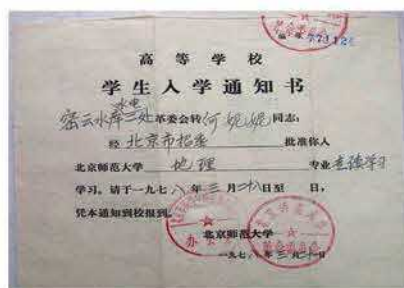 编号 773126
高等学校
学生入学通知书
水电
密云水库三处革委会转何妮妮同志:
经北京市招委批准你入
北京师范大学地理专业走读学习
学习。请于一九七八年三月二十八日至 日,
凭本通知到校报到。
北京师范大学
一九七八年三月二十日